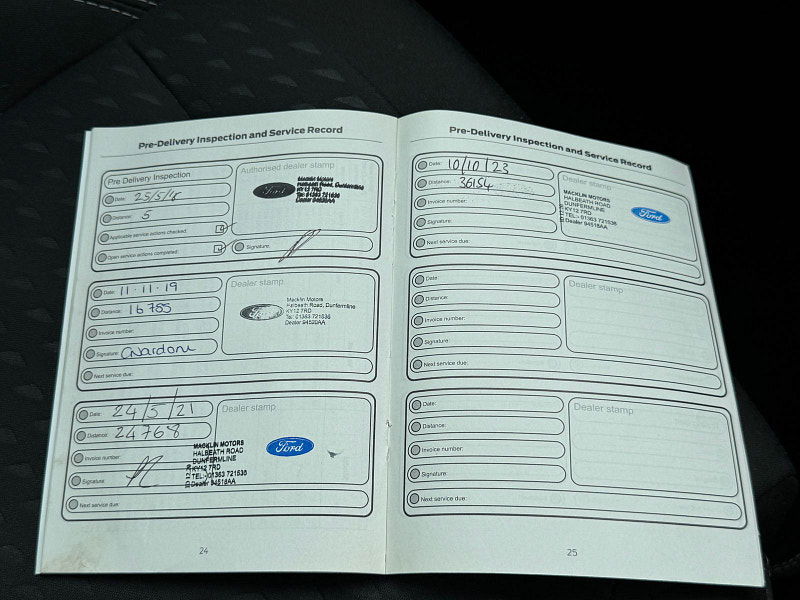 Pre-Delivery Inspection and Service Record
Pre Delivery Inspection
Date: 25/5/18
Distance: 5
Applicable service actions checked:
Open service actions completed:
Authorised dealer stamp
Ford
Macklin Motors
Halbeath Road, Dunfermline
KY12 7RD
Tel: 01383 721536
Signature:
Date: 11.11.19
Distance: 16755
Invoice number:
Signature:
Next service due:
Dealer stamp
Macklin Motors
Halbeath Road, Dunfermline
KY12 7RD
Tel: 01383 721536
Dealer 94520AA
Date: 24/5/21
Distance: 24768
Invoice number:
Signature:
Next service due:
Dealer stamp
Ford
MACKLIN MOTORS
HALBEATH ROAD
DUNFERMLINE
KY12 7RD
TEL:-01383 721536
Dealer 94518AA
24
Pre-Delivery Inspection and Service Record
Date: 10/10/23
Distance: 36154
Invoice number:
Signature:
Next service due:
Dealer stamp
Ford
MACKLIN MOTORS
HALBEATH ROAD
DUNFERMLINE
KY12 7RD
TEL:-01383 721536
Dealer 94518AA
Date:
Distance:
Invoice number:
Signature:
Next service due:
Dealer stamp
Date:
Distance:
Invoice number:
Signature:
Next service due:
Dealer stamp
25